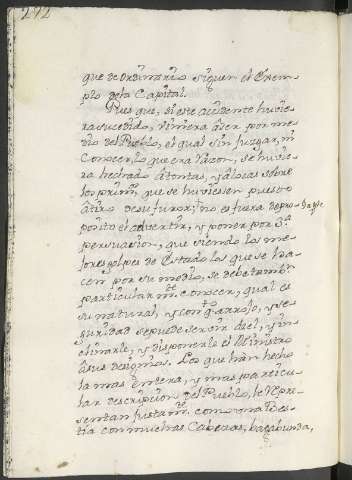 212
que de ordinario siguen el Exem-
plo de la Capital.
Pues que, si este accidente huvie-
ra sucedido, viniera à ser por me-
dio del Pueblo, el qual sin juzgar, ni
Conocer lo que era razon, se huvie-
ra hechado à tontas, y à locas sobre
los prim.os que se huviesen puesto
à tiro de su furor; no es fuera de pro-
posito el advertir, y poner por 3.a
persuacion, que siendo los me-
jores golpes de Estado los que se ha-
cen por su medio, se debe tamb.n
particularm.te conocer, qual es
su natural, y con q.to arrojo, y se-
guridad se puede servir de el, y in-
clinarle, y disponerle el Ministro
à sus designios. Los que han hecho
la mas entera, y mas particu-
lar descripcion del Pueblo, le repre-
sentan justam.te como una Bes-
tia con muchas Cabezas, bagabunda,